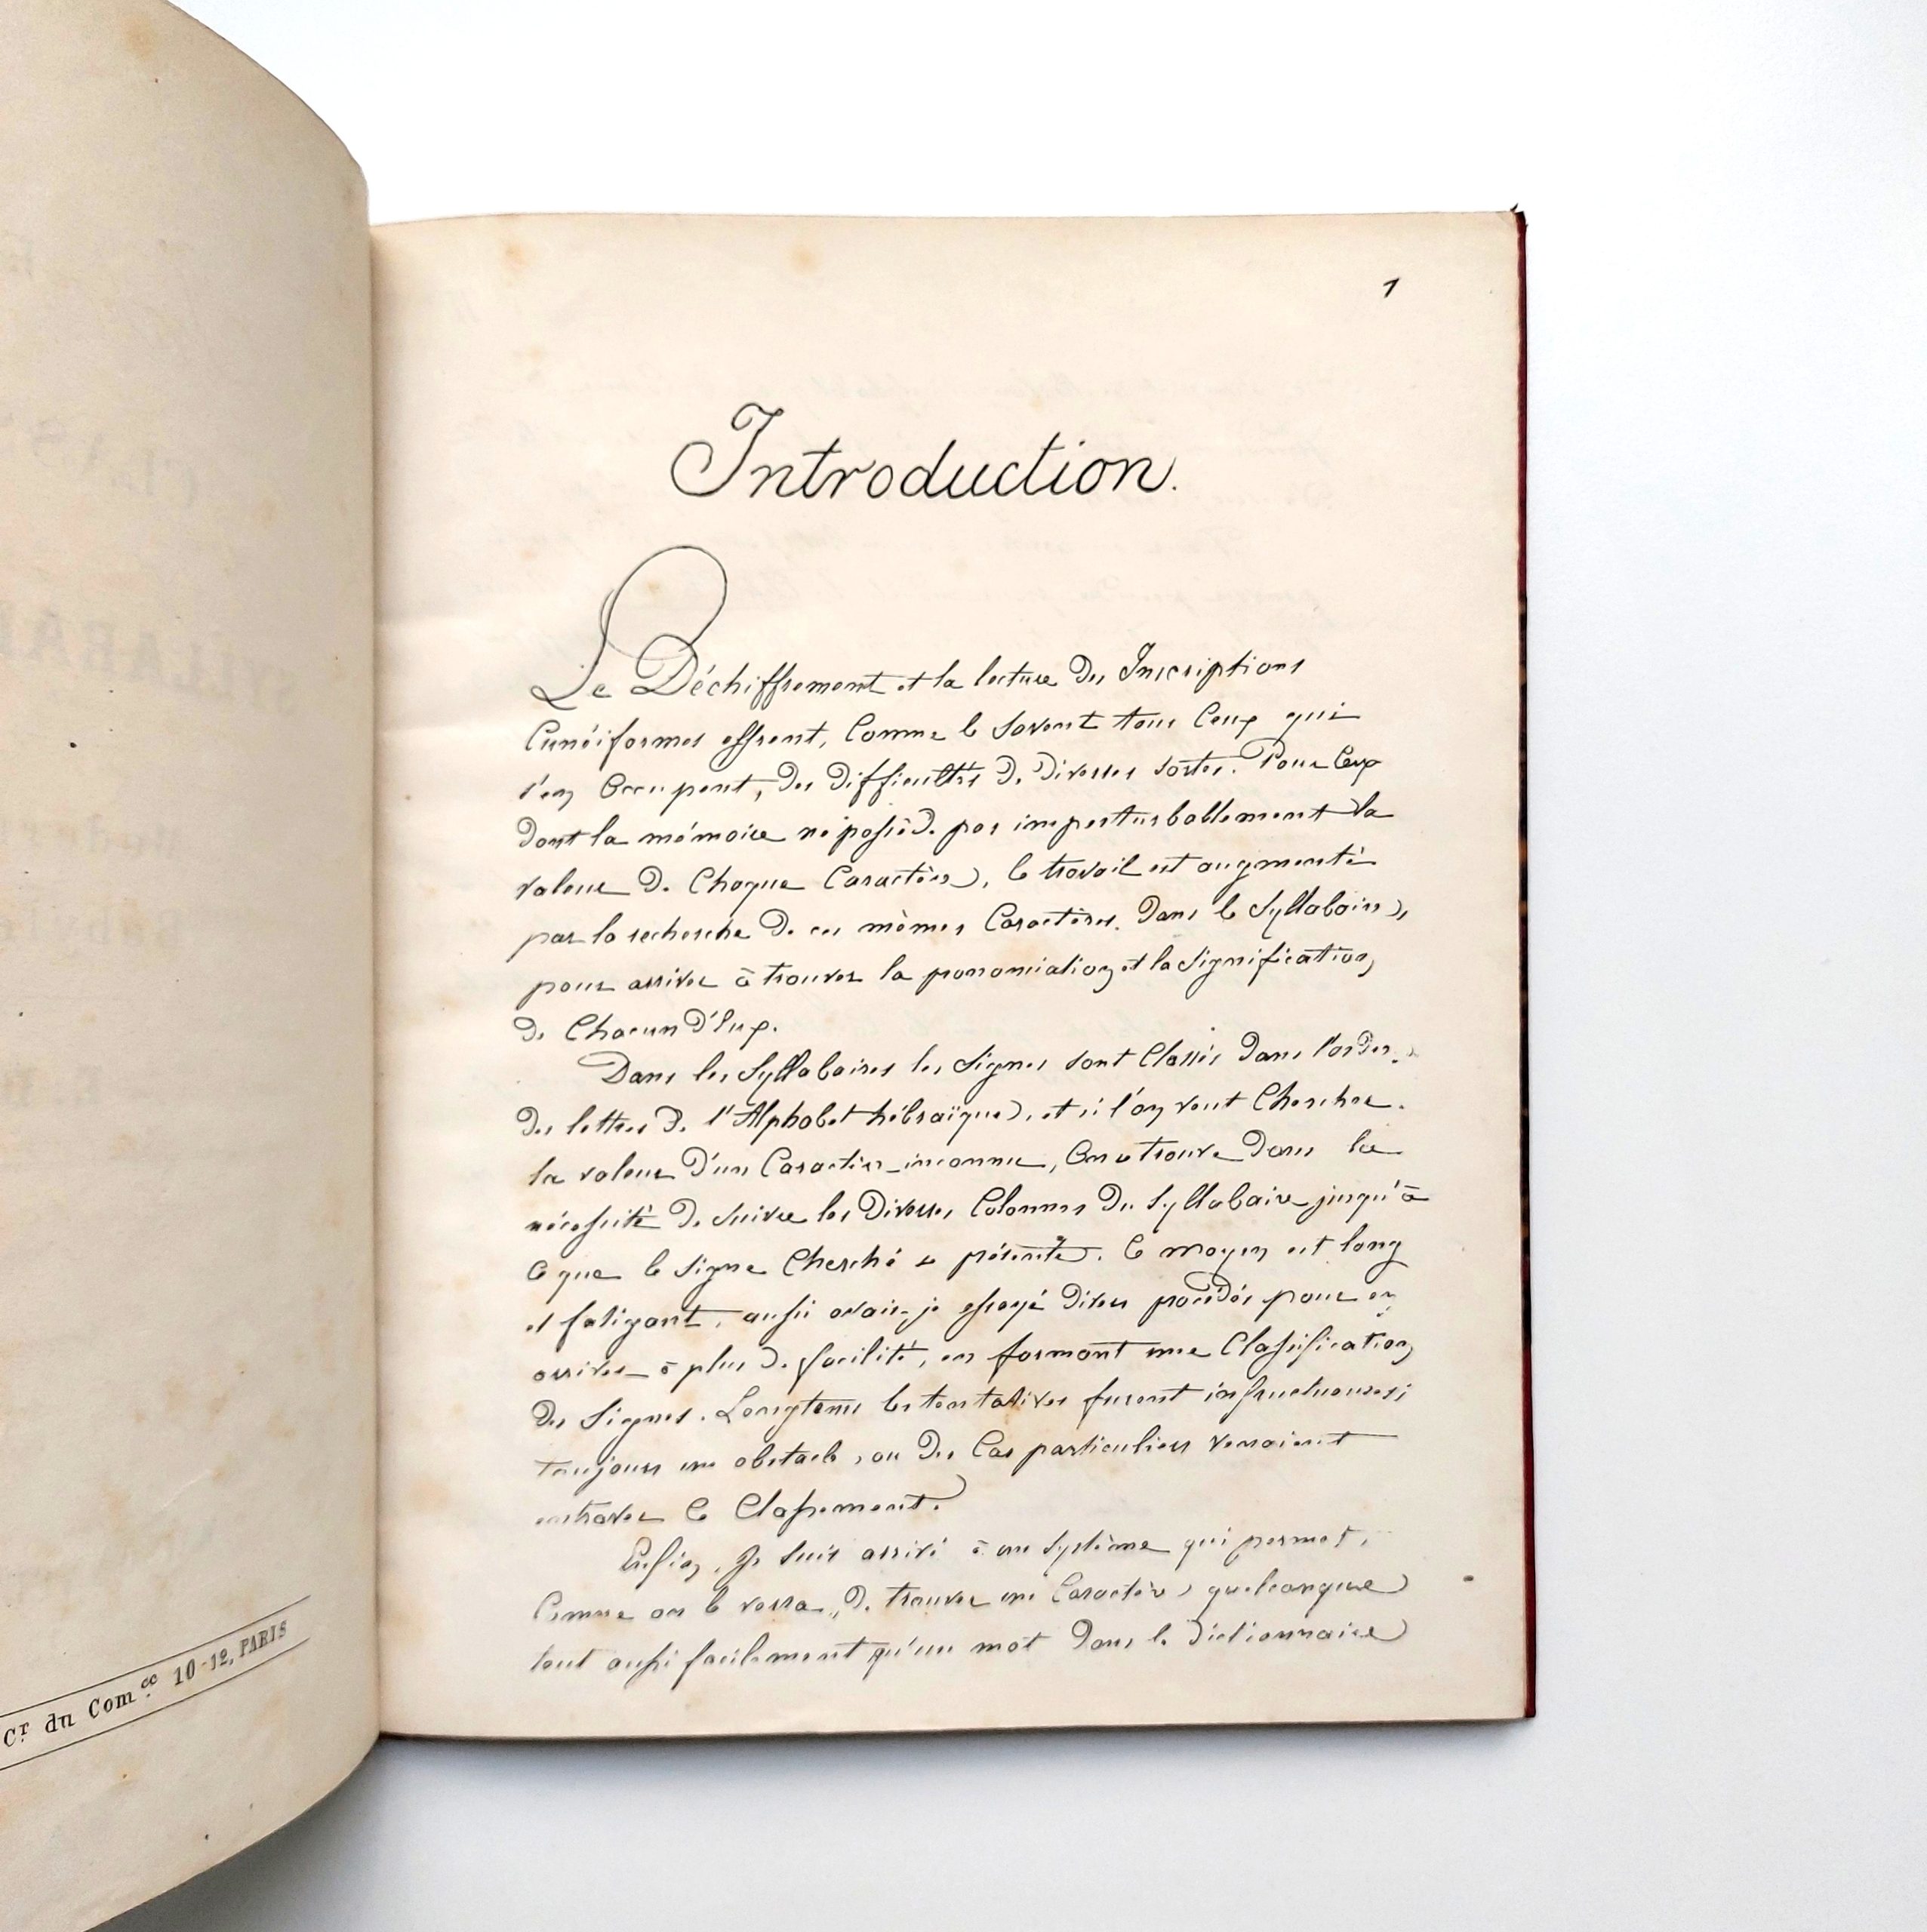 Cr. du Comce 10-12, PARIS
1
Introduction.
Le Déchiffrement et la lecture des Inscriptions
Cunéiformes offrent, Comme le savent tous Ceux qui
s'en Occupent, des difficultés de diverses sortes. Pour Ceux
dont la mémoire ne possède pas imperturbablement la
valeur de Chaque Caractère, le travail est augmenté
par la recherche de ces mêmes Caractères dans le Syllabaire,
pour arriver à trouver la prononciation et la signification
de Chacun d'Eux.
Dans les Syllabaires les Signes sont Classés dans l'ordre
des lettres de l'Alphabet hébraïque, et si l'on veut Chercher
la valeur d'un Caractère inconnu, On se trouve dans la
nécessité de suivre les diverses Colonnes du Syllabaire jusqu'à
ce que le signe Cherché se présente. Ce moyen est long
et fatigant, aussi avais-je essayé divers procédés pour en
arriver à plus de facilité, en formant une Classification
des Signes. Longtems les tentatives furent infructueuses;
toujours un obstacle, ou des Cas particuliers venaient
entraver Ce Classement.
Enfin, Je suis arrivé à un Système qui permet,
Comme on le verra, de trouver un Caractère quelconque
tout aussi facilement qu'un mot dans le Dictionnaire